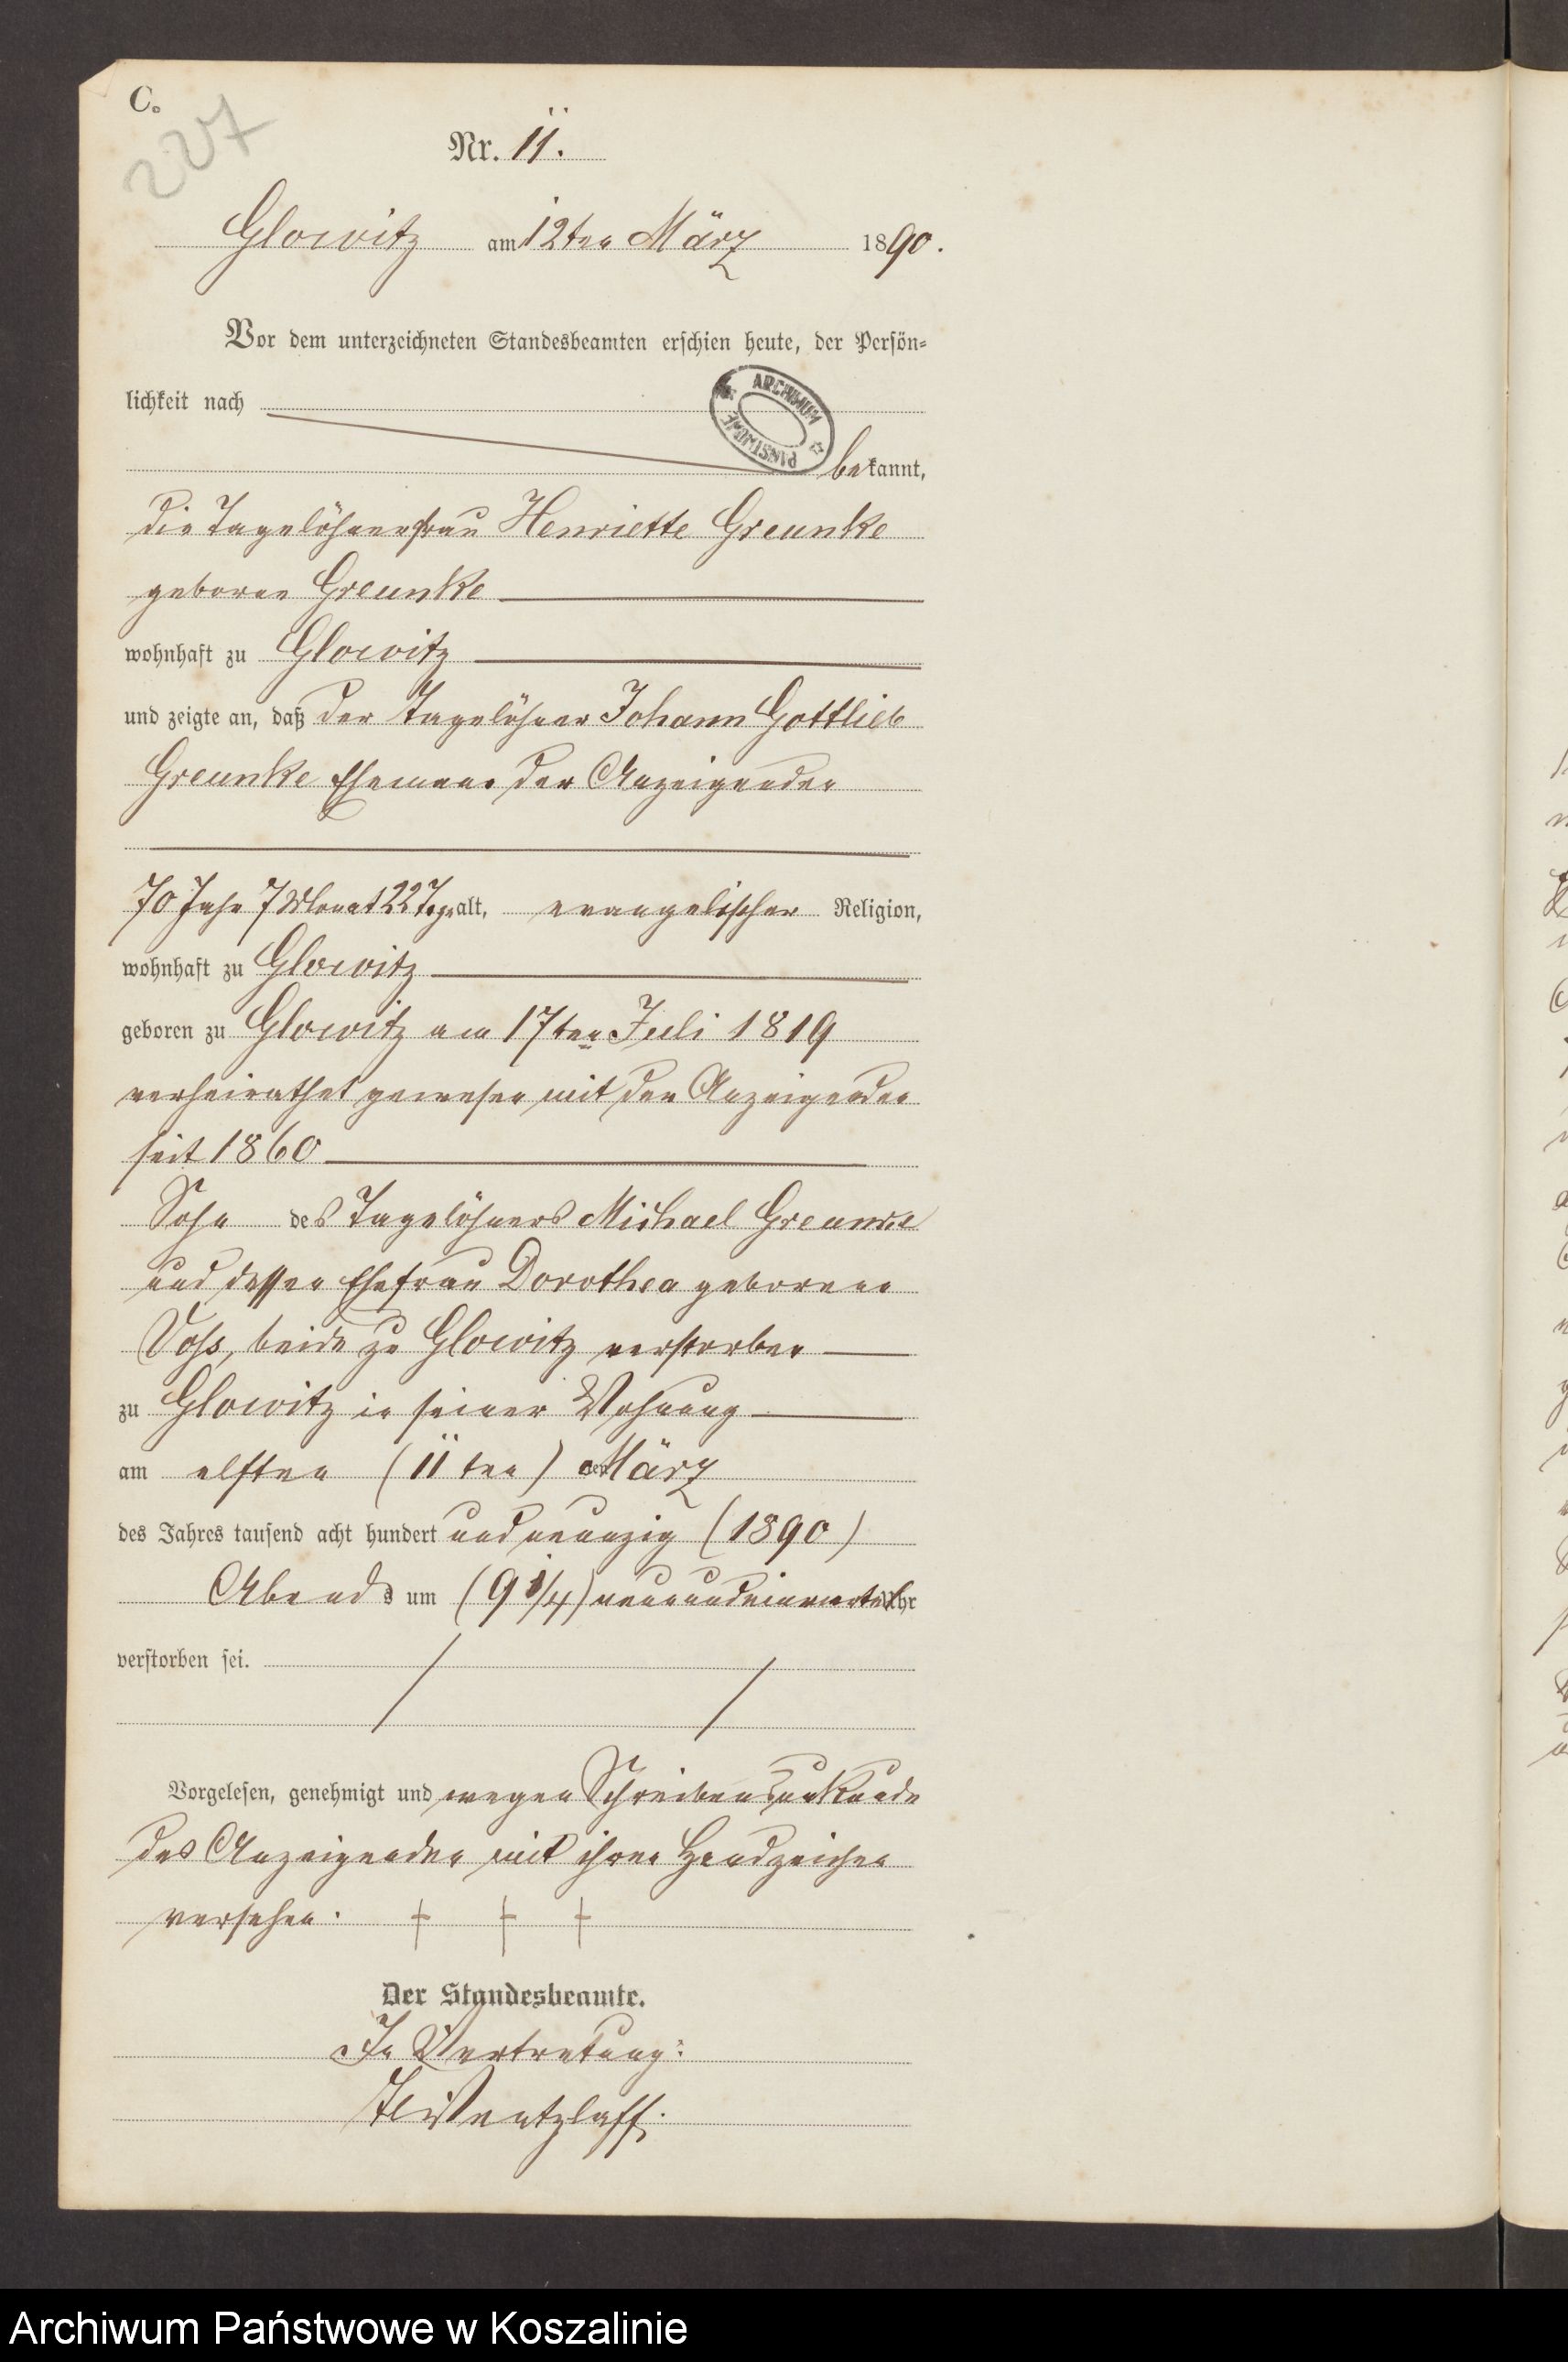 C.
227
Nr. 11.
Glowitz am 12ten März 1890.
Vor dem unterzeichneten Standesbeamten erschien heute, der Persön-
lichkeit nach
ARCHIWUM PAŃSTWOWE
bekannt,
die Tagelöhnerfrau Henriette Greunke
geborne Greunke
wohnhaft zu Glowitz
und zeigte an, daß der Tagelöhner Johann Gottlieb
Greunke Ehemann der Anzeigenden
70 Jahr 7 Monat 22 Tage alt, evangelischer Religion,
wohnhaft zu Glowitz
geboren zu Glowitz am 17ten Juli 1819
verheirathet gewesen mit der Anzeigenden
seit 1860
Sohn des Tagelöhners Michael Greunke
und dessen Ehefrau Dorothea geborene
Voss, beide zu Glowitz verstorben
zu Glowitz in seiner Wohnung
am elften (11ten) März
des Jahres tausend acht hundert und neunzig (1890)
Abends um (9 1/4) neunundeinviertel Uhr
verstorben sei.
Vorgelesen, genehmigt und wegen Schreibensunkunde
der Anzeigenden mit ihren Handzeichen
versehen. † † †
Der Standesbeamte.
In Vertretung:
Wentzlaff.
Archiwum Państwowe w Koszalinie